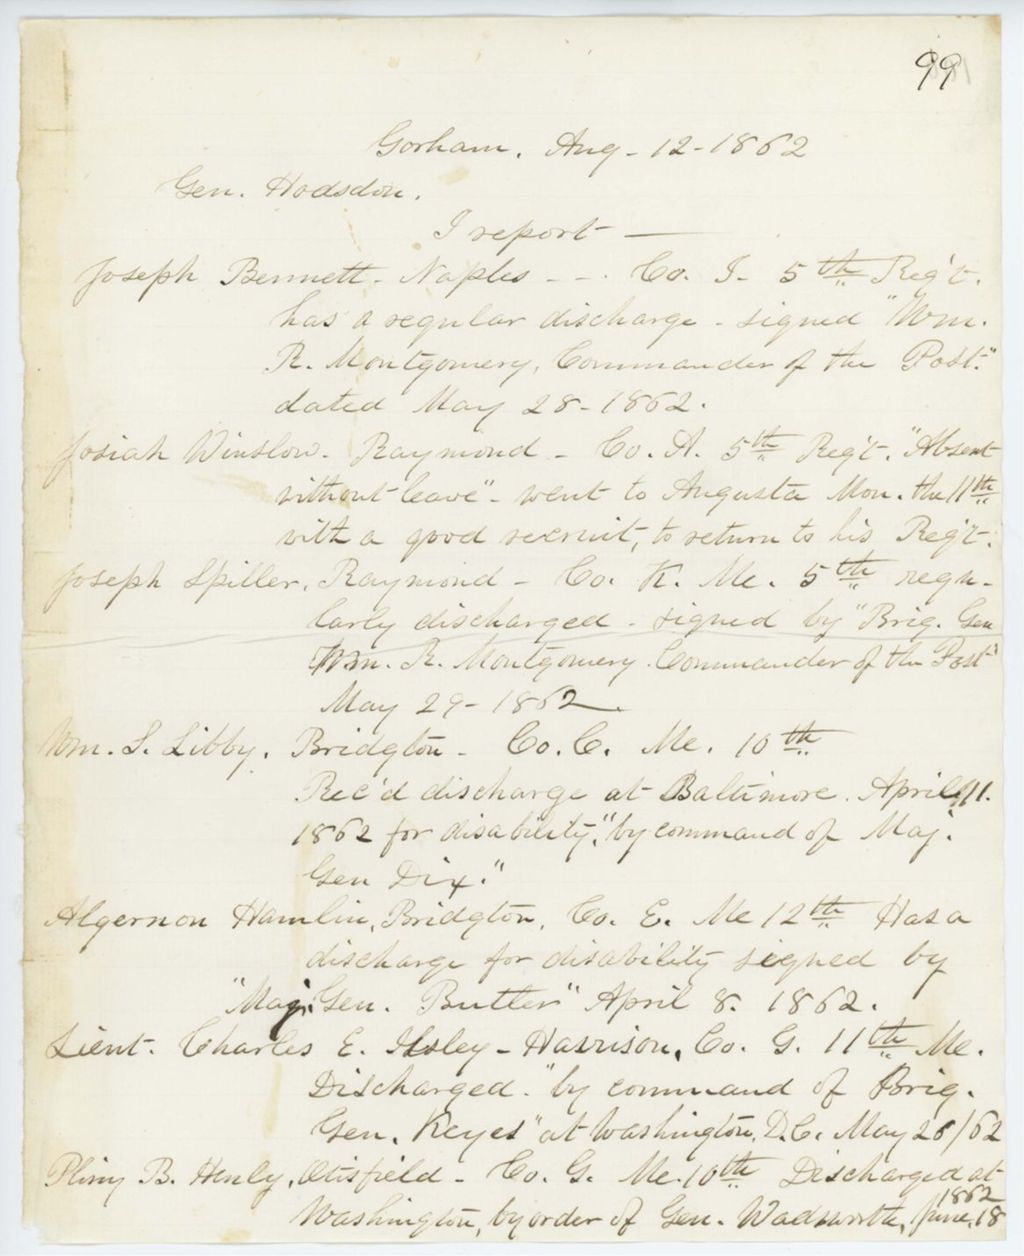 99
Gorham. Aug - 12 - 1862
Gen. Hodsdon.
I report —
Joseph Bennett - Naples - - . Co. I - 5th Reg't.
has a regular discharge - signed "Wm.
R. Montgomery, Commander of the Post."
dated May 28 - 1862.
Josiah Winslow - Raymond - Co. A. 5th Reg't. "Absent
without leave" - went to Augusta Mon. the 11th
with a good recruit, to return to his Reg't.
Joseph Spiller, Raymond - Co. K. Me. 5th regu-
larly discharged - signed by "Brig. Gen
Wm. R. Montgomery Commander of the Post"
May 29 - 1862
Wm. S. Libby. Bridgton - Co. C. Me. 10th
Rec'd discharge at Baltimore. April 11.
1862 for disability, "by command of Maj.
Gen Dix."
Algernon Hamlin, Bridgton, Co. E. Me 12th Has a
discharge for disability signed by
"Maj. Gen. Butler" April 8. 1862.
Lieut. Charles E. Ilsley - Harrison, Co. G. 11th Me.
Discharged - "by command of Brig.
Gen. Keyes" at Washington, D.C. May 26/62
Pliny B. Henly, Otisfield - Co. G. Me. 10th Discharged at
Washington, by order of Gen. Wadsworth, June, 18 1862